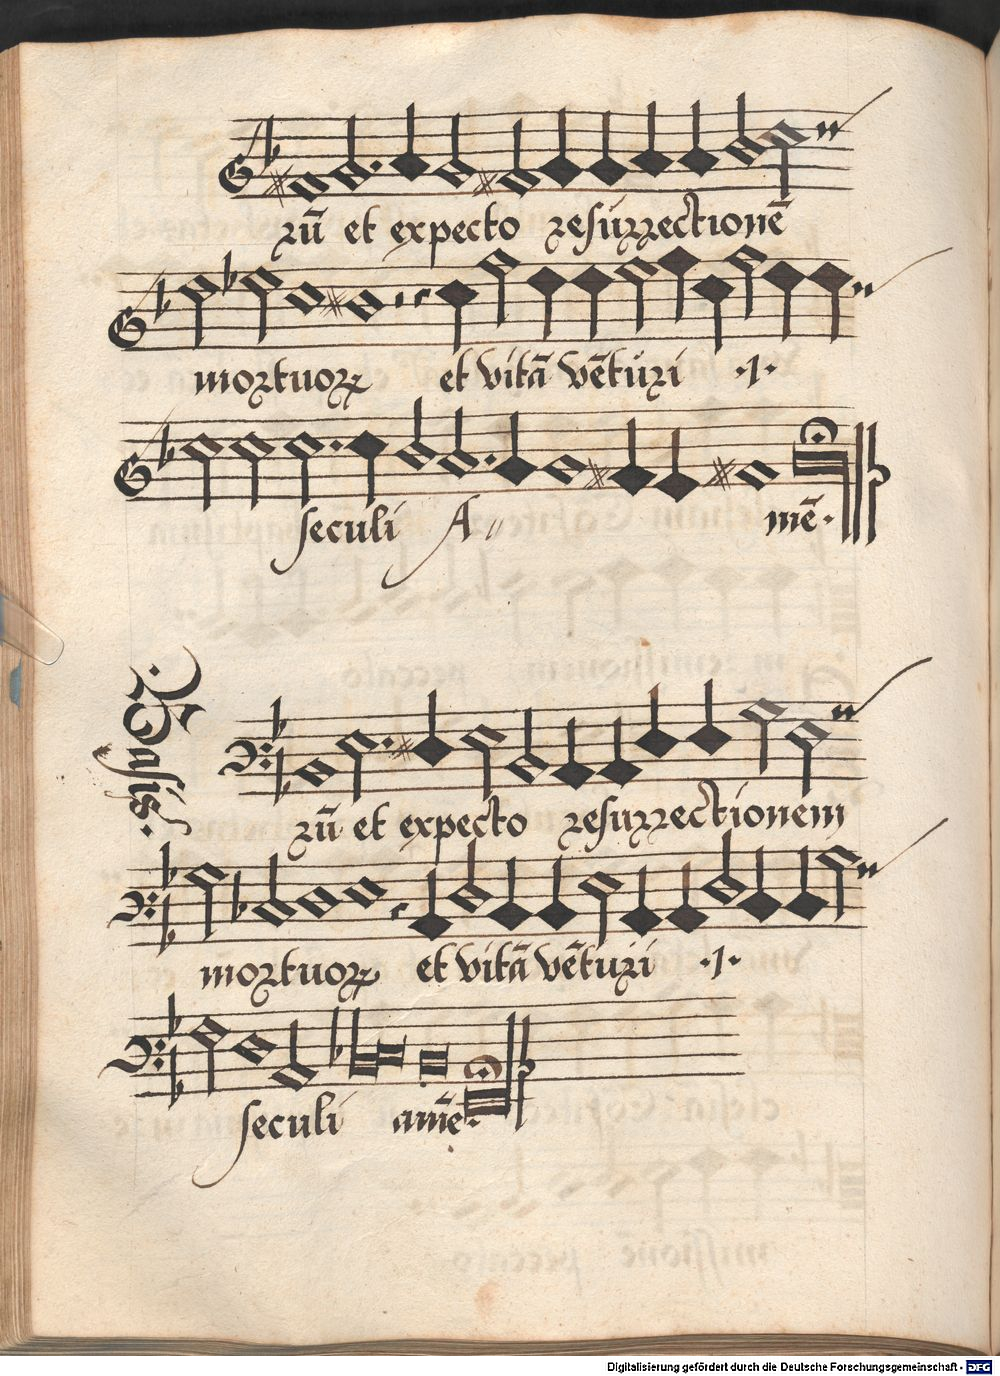 rū et expecto resurrectionē
mortuoꝝ et vitā vētúri ·1·
seculi A〃 mē·
Basis·
rū et expecto resurrectionem
mortuoꝝ et vitā vēturi ·1·
seculi amē·
Digitalisierung gefördert durch die Deutsche Forschungsgemeinschaft - DFG